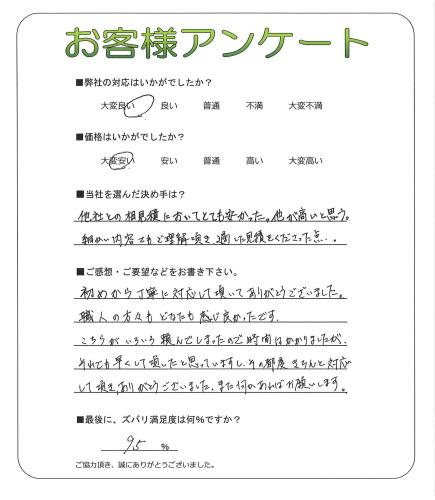 お客様アンケート
■弊社の対応はいかがでしたか?
大変良い 良い 普通 不満 大変不満
■価格はいかがでしたか?
大変安い 安い 普通 高い 大変高い
■当社を選んだ決め手は?
他社との相見積においてとても安かった。他が高いと思う。
細かい内容でもご理解頂き、適した見積をくださった点。
■ご感想・ご要望などをお書き下さい。
初めから丁寧に対応して頂いてありがとうございました。
職人の方々もどなたも感じ良かったです。
こちらがいろいろ頼んでしまったので時間はかかりましたが、
それでも早くして頂いたと思っていますし、その都度きちんと対応
して頂き、ありがとうございました。また何かあればお願いします。
■最後に、ズバリ満足度は何%ですか?
95 %
ご協力頂き、誠にありがとうございました。